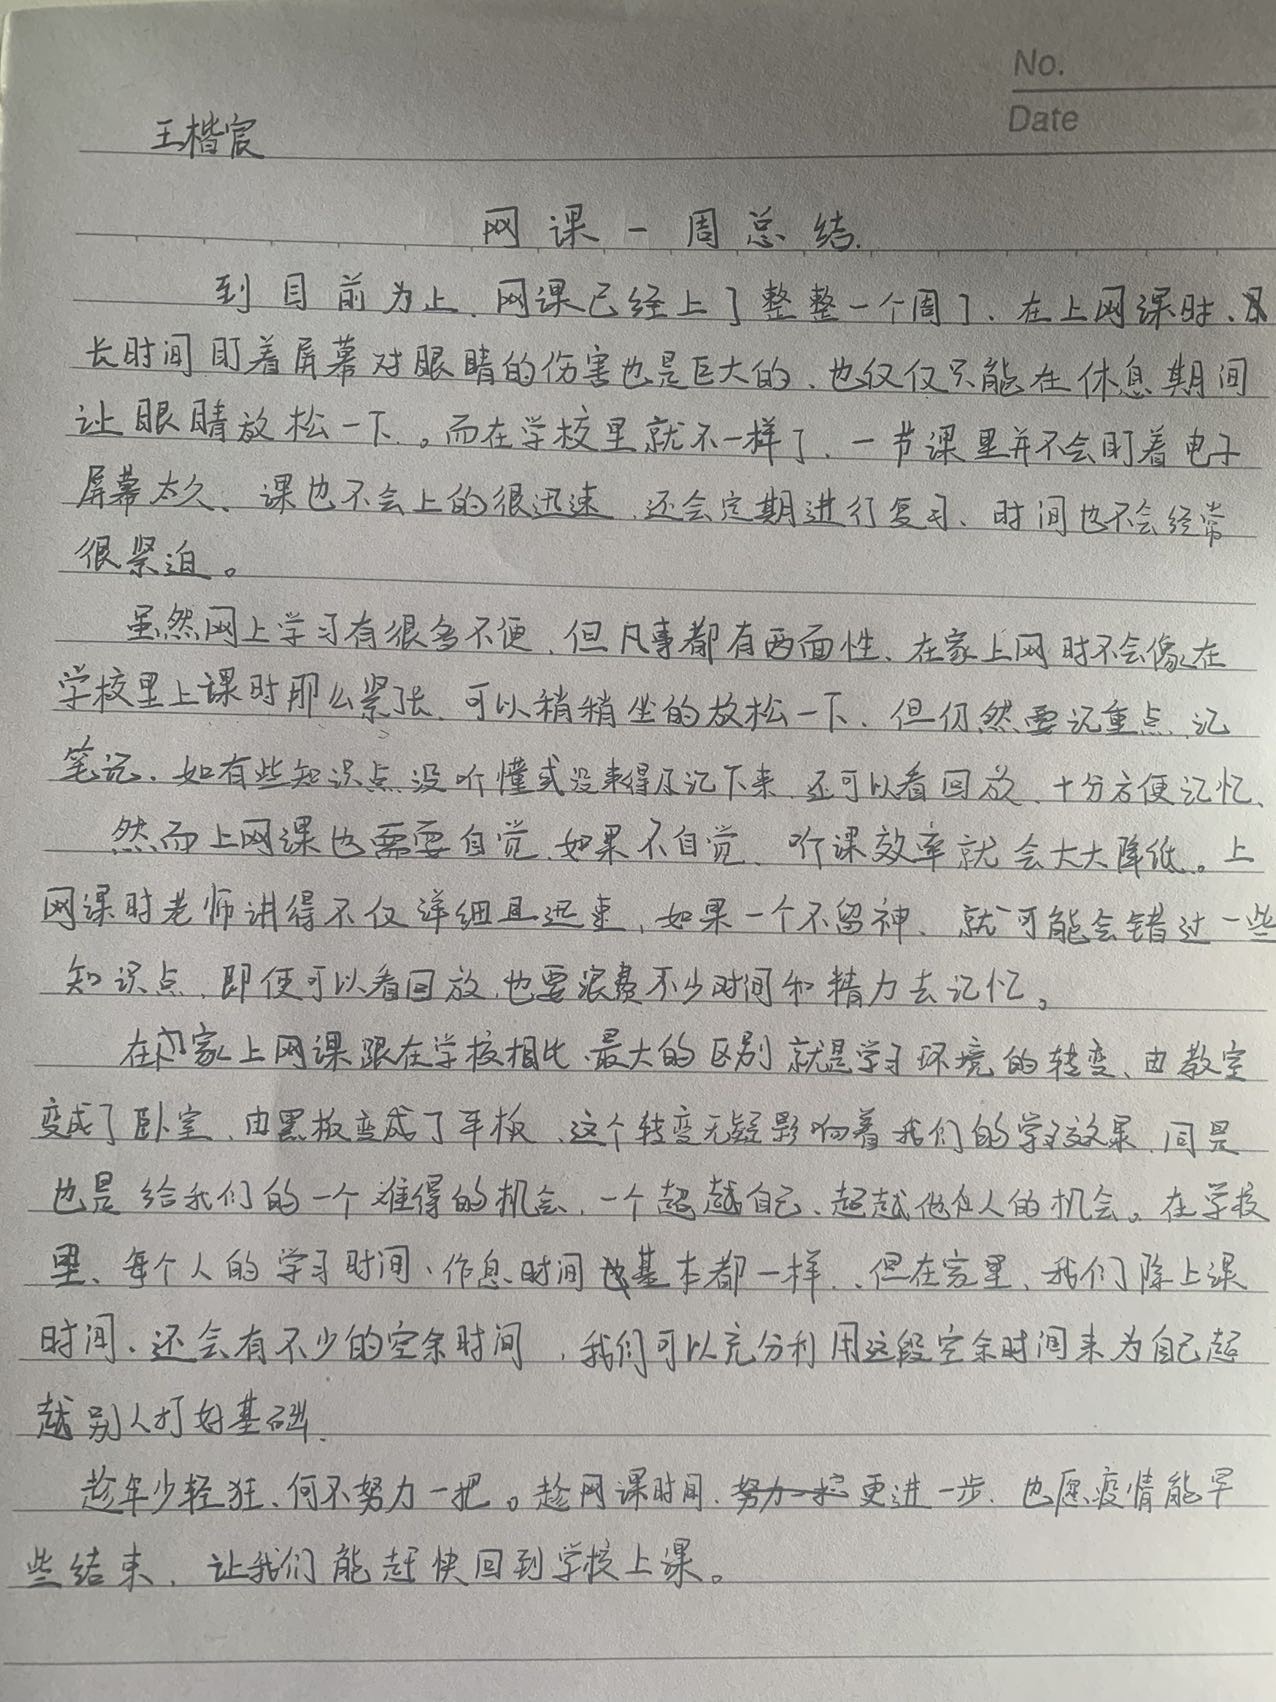 No.
Date
王楷宸
网课一周总结.
到目前为止、网课已经上了整整一个周了、在上网课时、
长时间盯着屏幕对眼睛的伤害也是巨大的、也仅仅只能在休息期间
让眼睛放松一下。而在学校里就不一样了、一节课里并不会盯着电子
屏幕太久、课也不会上的很迅速、还会定期进行复习、时间也不会经常
很紧迫。
虽然网上学习有很多不便、但凡事都有两面性、在家上网时不会像在
学校里上课时那么紧张、可以稍稍坐的放松一下、但仍然要记重点、记
笔记、如有些知识点没听懂或没来得及记下来、还可以看回放、十分方便记忆、
然而上网课也需要自觉、如果不自觉、听课效率就会大大降低。上
网课时老师讲得不仅详细且迅速、如果一个不留神、就可能会错过一些
知识点、即使可以看回放、也要浪费不少时间和精力去记忆。
在家上网课跟在学校相比、最大的区别就是学习环境的转变、由教室
变成了卧室、由黑板变成了平板、这个转变无疑影响着我们的学习效果、同是
也是给我们的一个难得的机会、一个超越自己、超越他人的机会。在学校
里、每个人的学习时间、作息时间也基本都一样、但在家里、我们除上课
时间、还会有不少的空余时间、我们可以充分利用这段空余时间来为自己超
越别人打好基础、
趁年少轻狂、何不努力一把。趁网课时间、更进一步、也愿疫情能早
些结束、让我们能赶快回到学校上课。